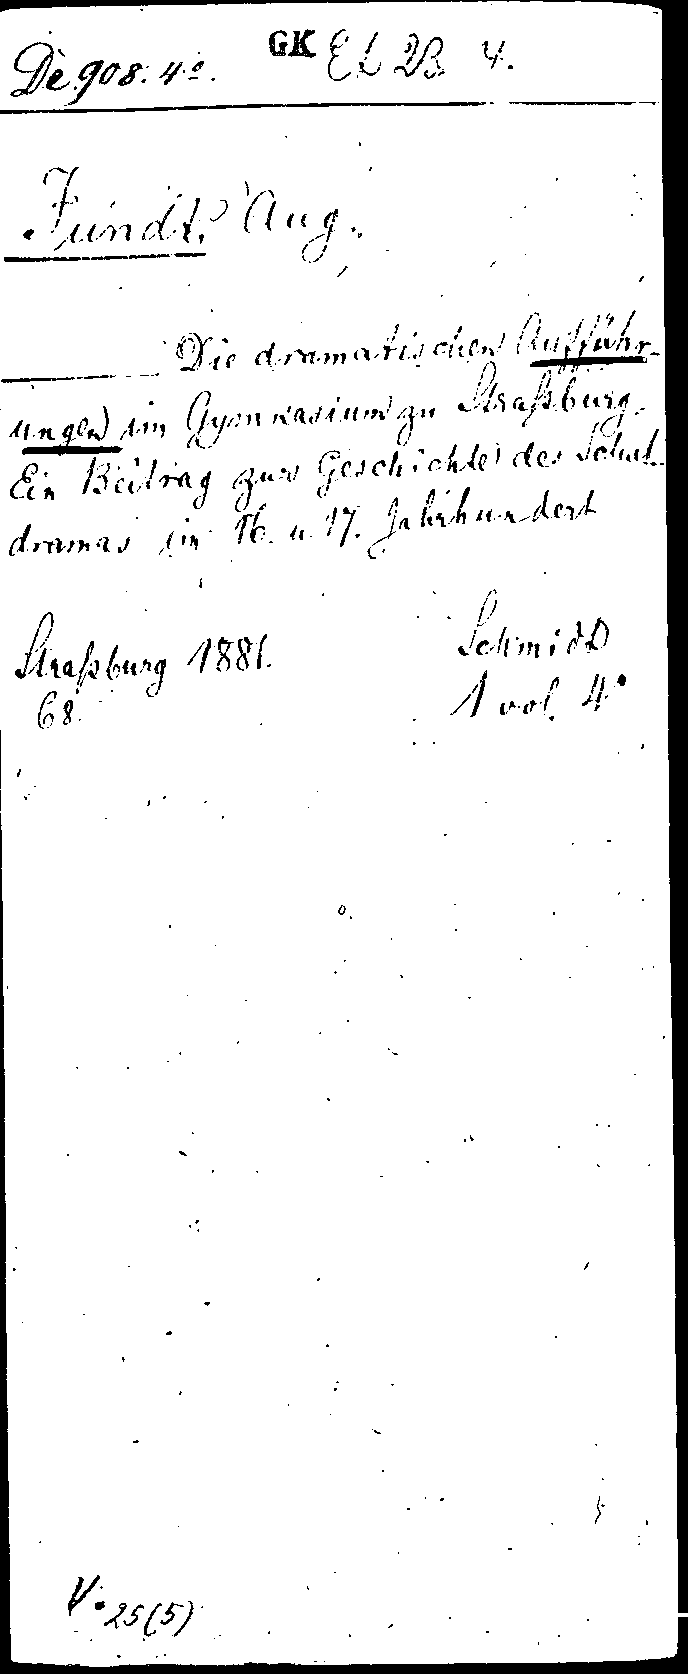 De 908. 4º. GK El 2B 4.
Jundt, Aug.
Die dramatischen Aufführ-
ungen im Gymnasium zu Straßburg.
Ein Beitrag zur Geschichte des Schul-
dramas im 16. u. 17. Jahrhundert
Straßburg 1881. Schmidt
68. 1 vol. 4º
V. 25(5)